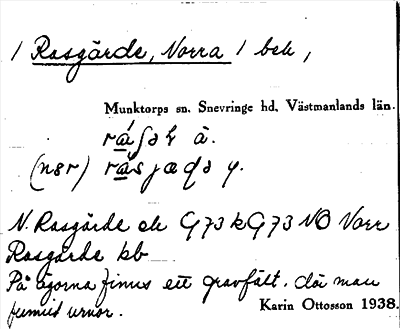 / Rasgärde, Norra / bek,
Munktorps sn. Snevringe hd. Västmanlands län.
(nsr)
N. Rasgärde ek G 73 k G 73 NO Norr
Rasgärde kb
På ägorna finns ett gravfält, där man
funnit urnor.
Karin Ottosson 1938.